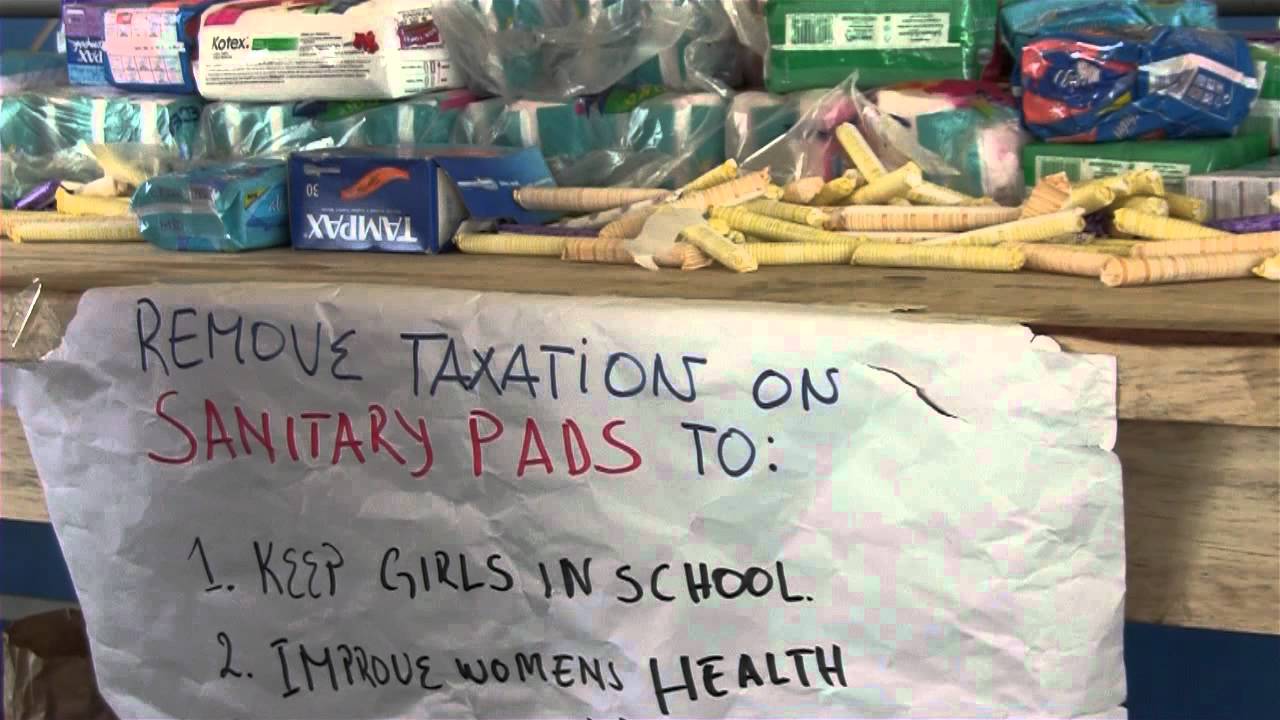 Kotex.
TAMPAX
30
TAMPAX
REMOVE TAXATION ON
SANITARY PADS TO:
1. KEEP GIRLS IN SCHOOL.
2. IMPROVE WOMENS HEALTH